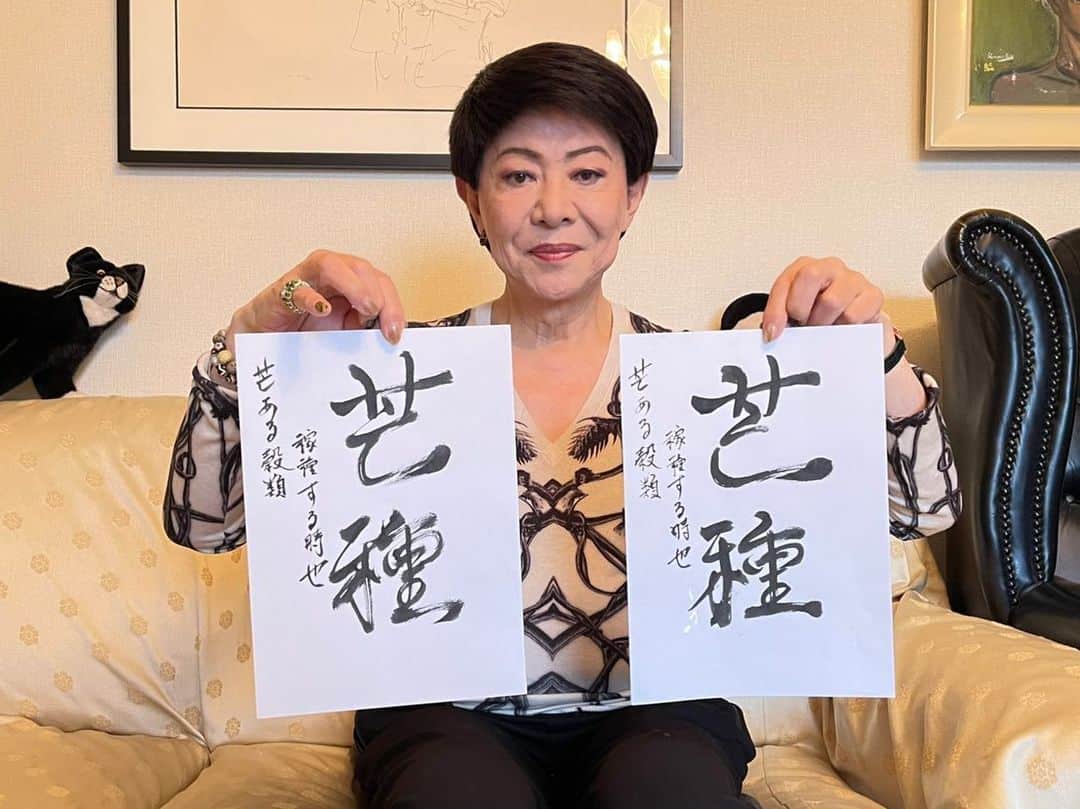 芒種
稼種する時也
芒ある穀類
芒種
稼種する時也
芒ある穀類